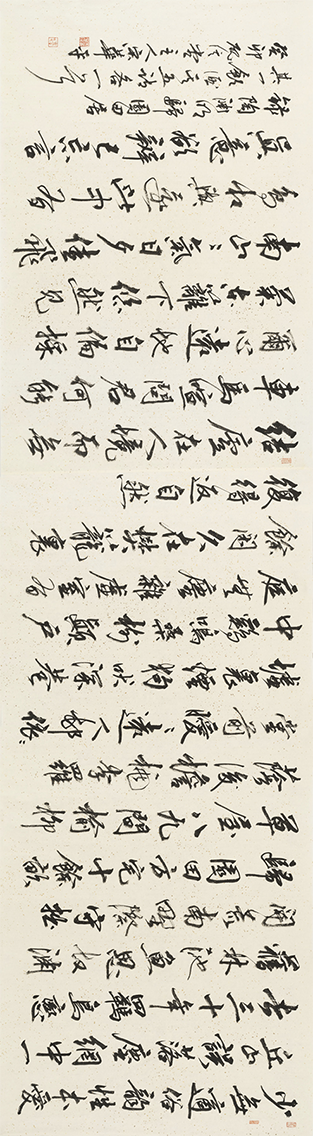 少無適俗韻性本愛
丘山誤落塵網中一
去三十年羈鳥戀
舊林池魚思故淵
開荒南野際守拙
歸園田方宅十餘畝
草屋八九間榆柳
蔭後簷桃李羅
堂前曖〻遠人邨依〻
墟裏煙狗吠深巷
中鷄鳴桑樹顛戶
庭無塵雜虛室有
餘閑久在樊籠裏
復得返自然
結廬在人境而無
車馬喧問君何能
爾心遠地自偏採
菊東籬下悠然見
南山〻氣日夕佳飛
鳥相與還此中有
真意欲辨已忘言
錄陶淵明歸園田居
其一飲酒其五詩各一首
癸卯 主人宋華平